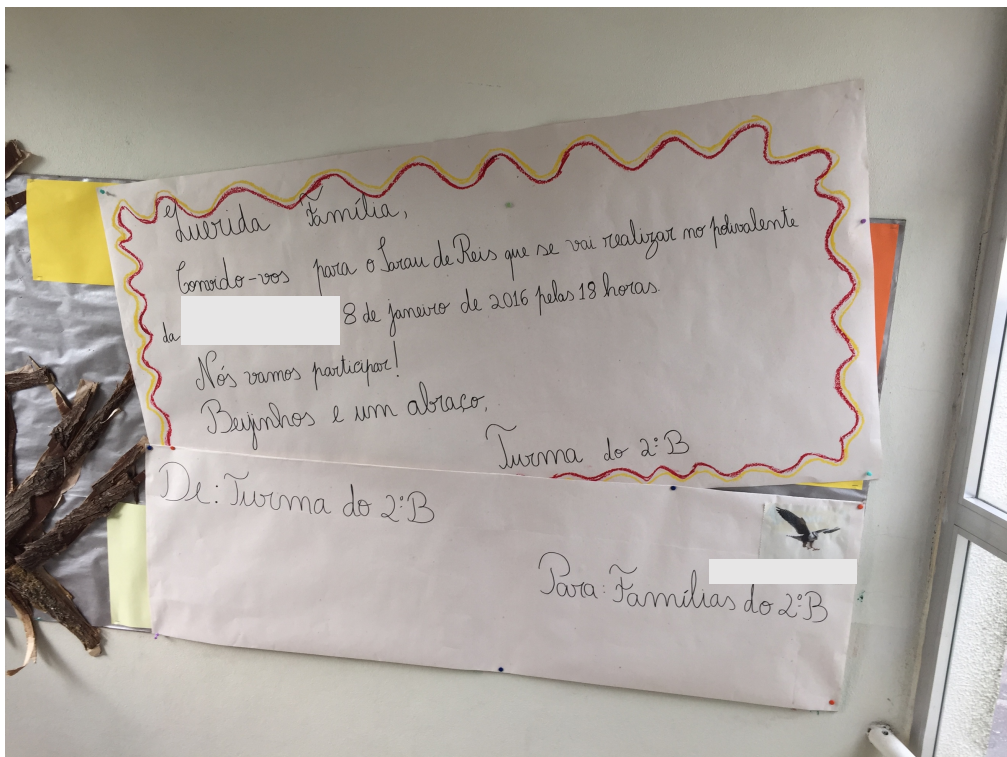 Querida Família,
Convido-vos para o Sarau de Reis que se vai realizar no polivalente
da 8 de janeiro de 2016 pelas 18 horas.
Nós vamos participar!
Beijinhos e um abraço,
Turma do 2ºB
De: Turma do 2ºB
Para: Famílias do 2ºB